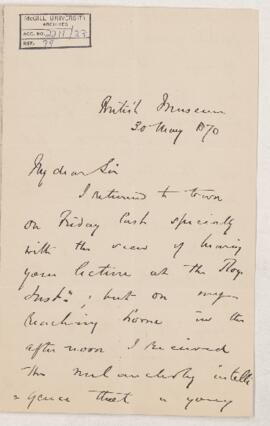 McGILL UNIVERSITY
ARCHIVES
ACC. NO.
REF.
British Museum
30 May 1870
My dear Sir
I returned to town
on Friday last specially
with the view of hearing
your lecture at the Roy.
Instn; but on my
reaching home in the
afternoon I received
the melancholy intelli
=gence that a young